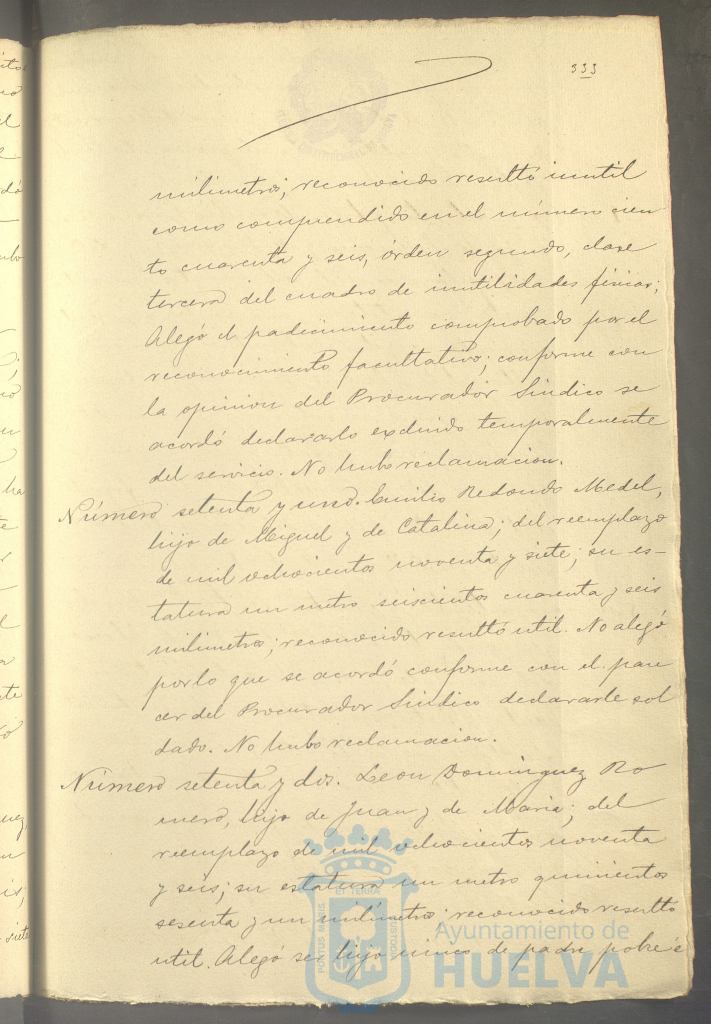 333
milimetros; reconocido resultó inutil
como comprendido en el número cien
to cuarenta y seis, órden segundo, clase
tercera del cuadro de inutilidades fisicas;
Alegó el padecimiento comprobado por el
reconocimiento facultativo; conforme con
la opinion del Procurador Sindico se
acordó declararlo excluido temporalmente
del servicio. No hubo reclamacion.
Número setenta y uno. Emilio Redondo Medel,
hijo de Miguel y de Catalina; del reemplazo
de mil ochocientos noventa y siete; su es-
tatura un metro seiscientos cuarenta y seis
milimetros; reconocido resultó util. No alegó
por lo que se acordó conforme con el pare
cer del Procurador Sindico declararle sol
dado. No hubo reclamacion.
Número setenta y dos. Leon Dominguez Ro
mero, hijo de Juan y de Maria; del
reemplazo de mil ochocientos noventa
y seis; su estatura un metro quinientos
sesenta y un milímetros; reconocido resultó
util. Alegó ser hijo unico de padre pobre é
PORTUS MARIS
ET TERRAE
CUSTODIA
Ayuntamiento de
HUELVA